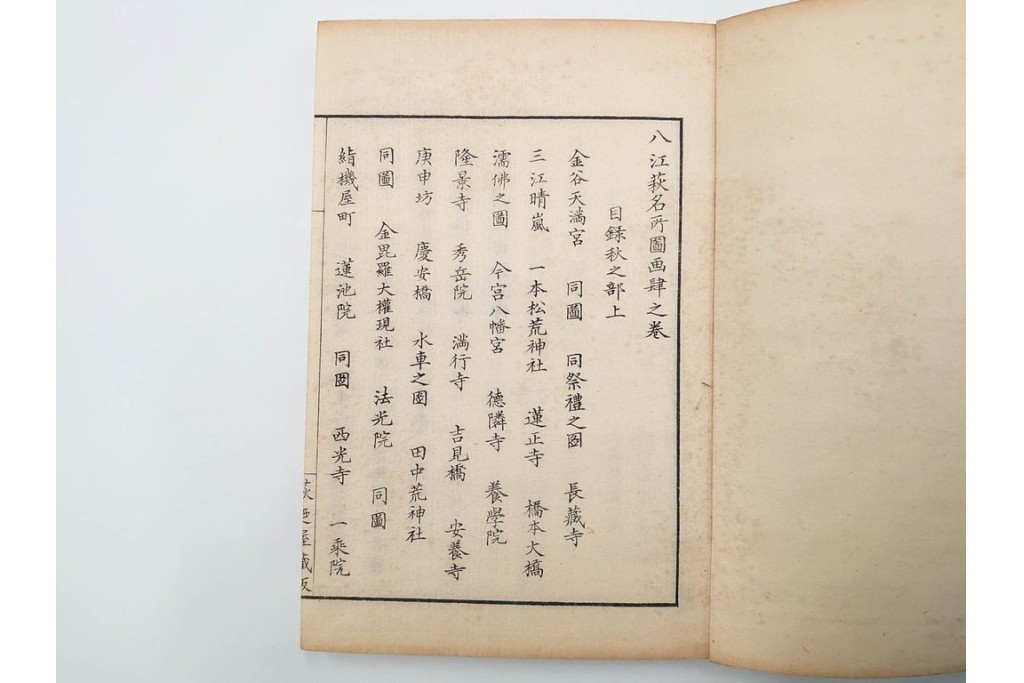 八江萩名所圖画肆之巻
目録秋之部上
金谷天満宮 同圖 同祭禮之圖 長藏寺
三江晴嵐 一本松荒神社 蓮正寺 橋本大橋
濡佛之圖 今宮八幡宮 德隣寺 養學院
隆景寺 秀岳院 満行寺 吉見橋 安養寺
庚申坊 慶安橋 水車之圖 田中荒神社
同圖 金毘羅大權現社 法光院 同圖
機屋町 蓮池院 同圖 西光寺 一乘院